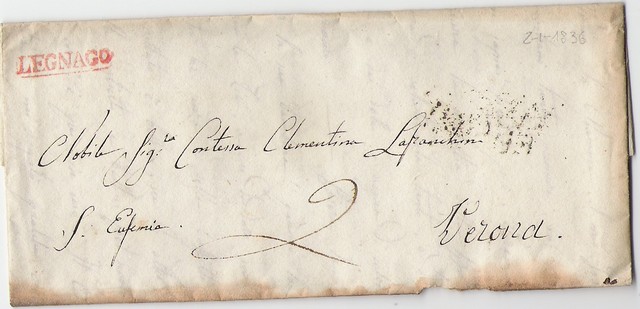 LEGNAGO
2-1-1836
Nobile Sig.ra Contessa Clementina Lafranchini
S. Eufemia.
2
Verona.